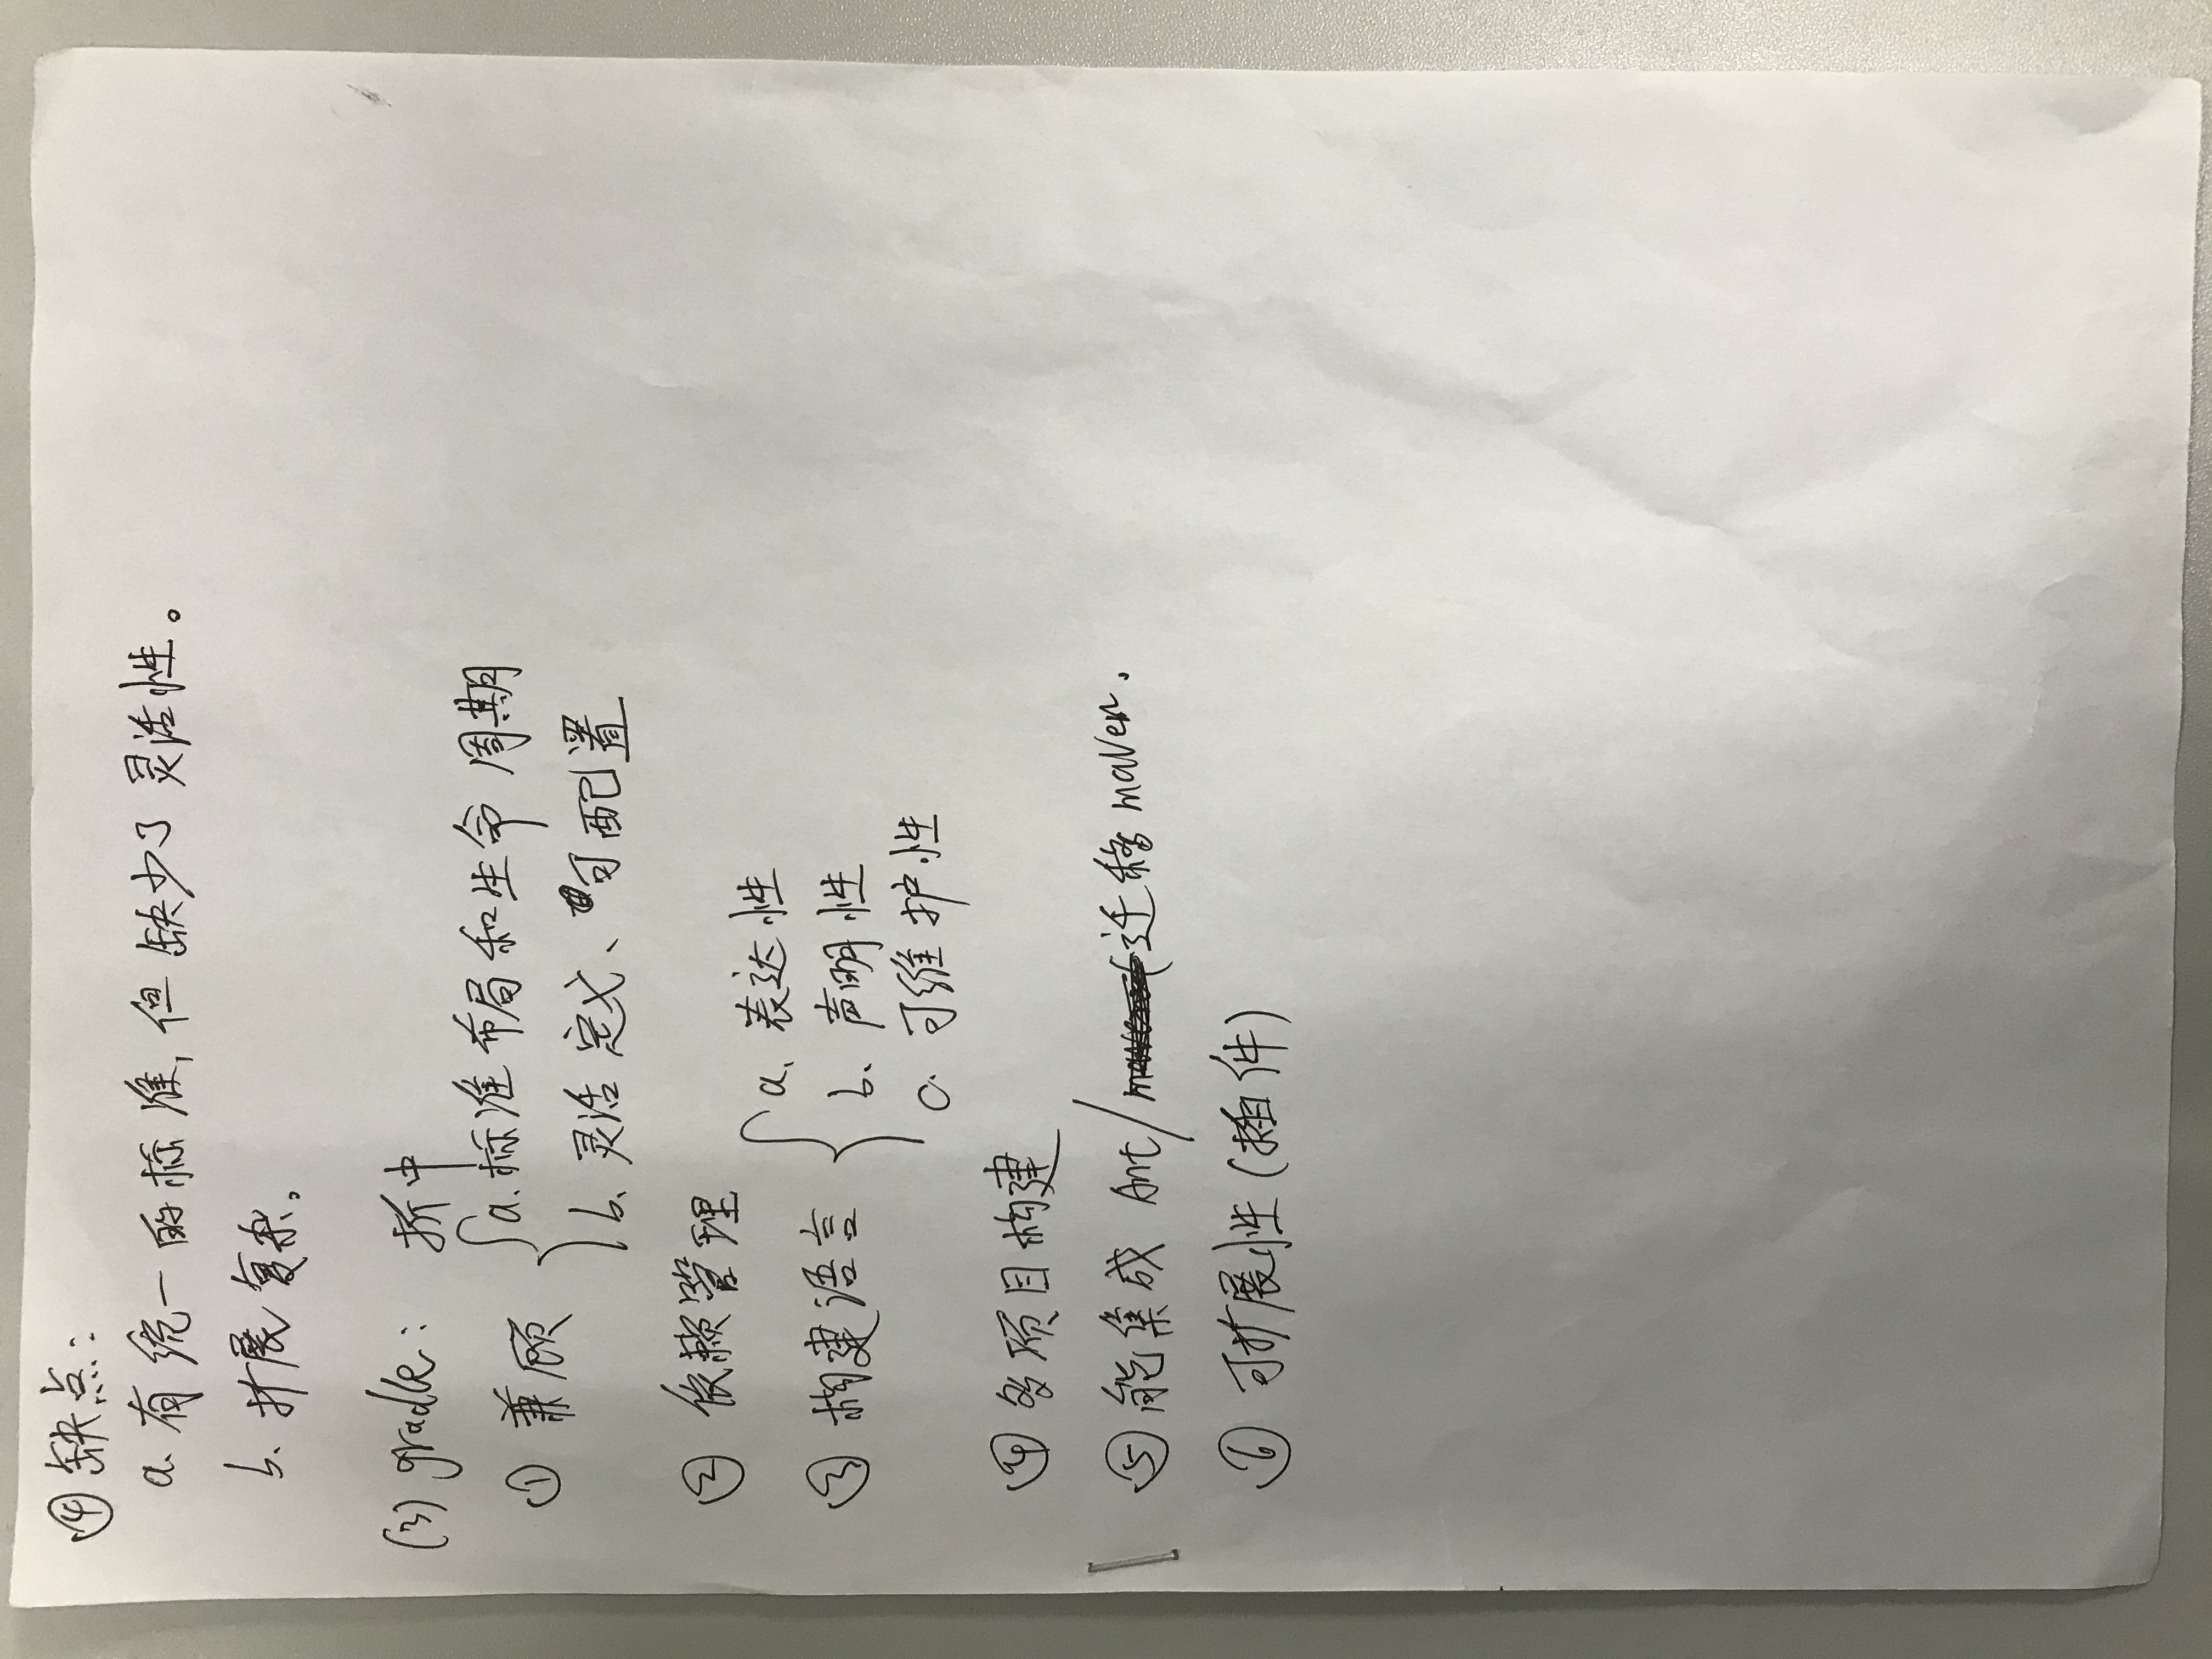 ④ 缺点:
a. 有统一的标准, 但缺少了灵活性。
b. 扩展复杂。
(3) gradle: 折中
① 兼顾
a. 标准布局和生命周期
b. 灵活定义、可配置
② 依赖管理
③ 构建语言
a. 表达性
b. 声明性
c. 可维护性
④ 多项目构建
⑤ 能集成 Ant/迁移 maven.
⑥ 可扩展性(插件)